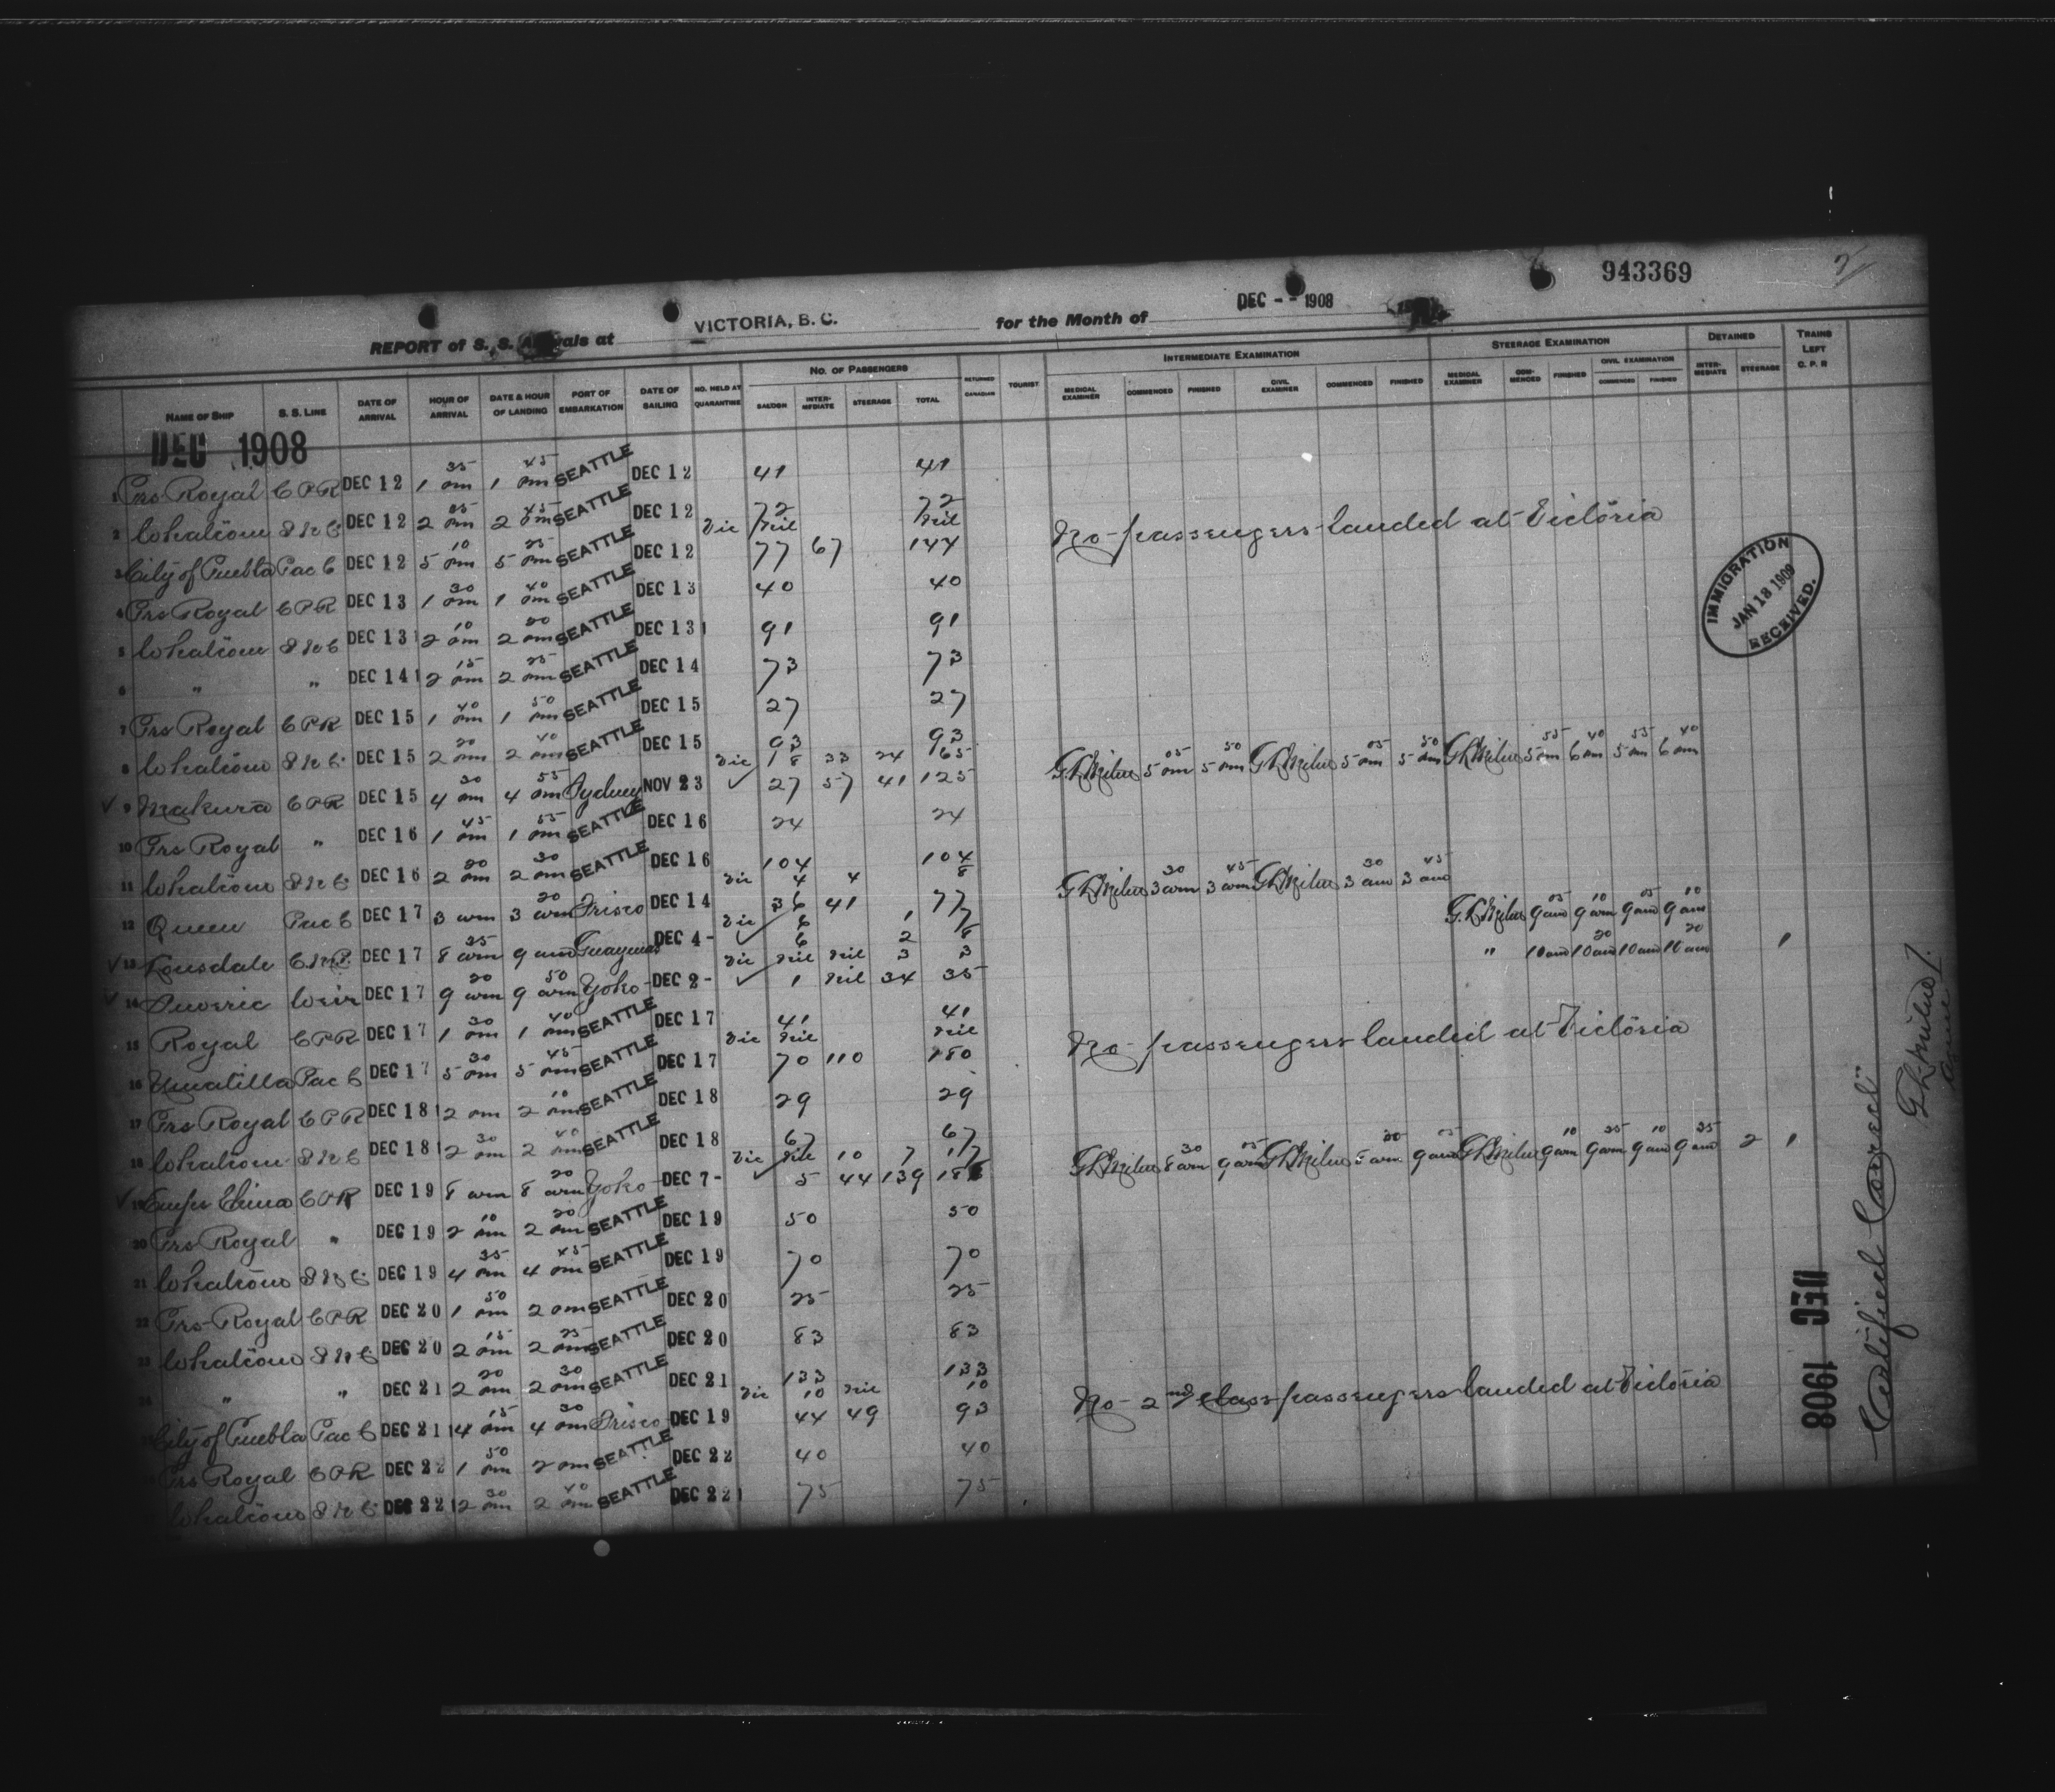 943369
REPORT of S. S. Arrivals at VICTORIA, B. C. for the Month of DEC - - 1908
NAME OF SHIP S. S. LINE DATE OF ARRIVAL HOUR OF ARRIVAL DATE & HOUR OF LANDING PORT OF EMBARKATION DATE OF SAILING NO. HELD AT QUARANTINE NO. OF PASSENGERS SALOON INTERMEDIATE STEERAGE TOTAL RETURNED CANADIAN TOURIST INTERMEDIATE EXAMINATION MEDICAL EXAMINER COMMENCED FINISHED CIVIL EXAMINER COMMENCED FINISHED STEERAGE EXAMINATION MEDICAL EXAMINER COMMENCED FINISHED CIVIL EXAMINATION COMMENCED FINISHED DETAINED INTERMEDIATE STEERAGE TRAINS LEFT C. P. R
DEC 1908
1 Prs Royal C P R DEC 12 1 35 pm 1 45 pm SEATTLE DEC 12 41 41
2 Whatcom S N C DEC 12 2 35 pm 2 45 pm SEATTLE DEC 12 72 72
Vic nil nil No passengers landed at Victoria
3 City of Puebla Pac C DEC 12 5 10 pm 5 25 pm SEATTLE DEC 12 77 67 144
4 Prs Royal C P R DEC 13 1 30 pm 1 40 pm SEATTLE DEC 13 40 40
5 Whatcom S N C DEC 13 2 10 pm 2 20 pm SEATTLE DEC 13 91 91
6 " " DEC 14 2 15 pm 2 25 pm SEATTLE DEC 14 73 73
7 Prs Royal C P R DEC 15 1 40 pm 1 50 pm SEATTLE DEC 15 27 27
8 Whatcom S N C DEC 15 2 20 pm 2 40 pm SEATTLE DEC 15 93 93
Vic 18 23 24 65 G L Milne 5 05 pm 5 50 pm G L Milne 5 05 pm 5 50 pm G L Milne 5 55 pm 6 40 pm 5 55 pm 6 40 pm
9 Makura C P R DEC 15 4 30 pm 4 55 pm Sydney NOV 23 27 57 41 125
10 Prs Royal " DEC 16 1 45 pm 1 55 pm SEATTLE DEC 16 24 24
11 Whatcom S N C DEC 16 2 20 pm 2 30 pm SEATTLE DEC 16 104 104
Vic 4 4 8 G L Milne 3 30 am 3 45 am G L Milne 3 30 am 3 45 am
12 Queen Pac C DEC 17 3 am 3 20 am Frisco DEC 14 36 41 77
Vic 6 1 7 G. L Milne 9 05 am 9 10 am 9 05 am 9 10 am
13 Lonsdale C. N P. DEC 17 8 35 am 9 am Guaymas DEC 4 - 6 2 8
Vic nil nil 3 3 " 10 am 10 20 am 10 am 10 20 am 1
14 Suveric Weir DEC 17 9 20 am 9 50 am Yoko - DEC 2 - 1 nil 34 35
15 Royal C P R DEC 17 1 30 pm 1 40 pm SEATTLE DEC 17 41 41
Vic nil nil No passengers landed at Victoria
16 Umatilla Pac C DEC 17 5 30 pm 5 45 pm SEATTLE DEC 17 70 110 180
17 Prs Royal C P R DEC 18 2 pm 2 10 pm SEATTLE DEC 18 29 29
18 Whatcom S N C DEC 18 2 30 pm 2 40 pm SEATTLE DEC 18 67 67
Vic nil 10 7 17 G L Milne 8 30 am 9 05 am G L Milne 9 05 am G L Milne 9 10 am 9 35 am 9 10 am 9 35 am 2 1
19 Empr China C P R DEC 19 8 am 8 20 am Yoko - DEC 7 - 5 44 139
20 Prs Royal " DEC 19 2 10 pm 2 20 pm SEATTLE DEC 19 50 50
21 Whatcom S N C DEC 19 4 35 pm 4 45 pm SEATTLE DEC 19 70 70
22 Prs Royal C P R DEC 20 1 50 pm 2 pm SEATTLE DEC 20 25 25
23 Whatcom S N C DEC 20 2 15 pm 2 25 pm SEATTLE DEC 20 83 83
24 " " DEC 21 2 20 pm 2 30 pm SEATTLE DEC 21 133 133
Vic 10 nil 10 No 2nd class passengers landed at Victoria
City of Puebla Pac C DEC 21 4 15 pm 4 30 pm Frisco DEC 19 44 49 93
Prs Royal C P R DEC 22 1 50 pm 2 pm SEATTLE DEC 22 40 40
Whatcom S N C DEC 22 2 30 pm 2 40 pm SEATTLE DEC 22 75 75
IMMIGRATION
JAN 18 1909
RECEIVED.
DEC 1908
Certified Correct
G L Milne